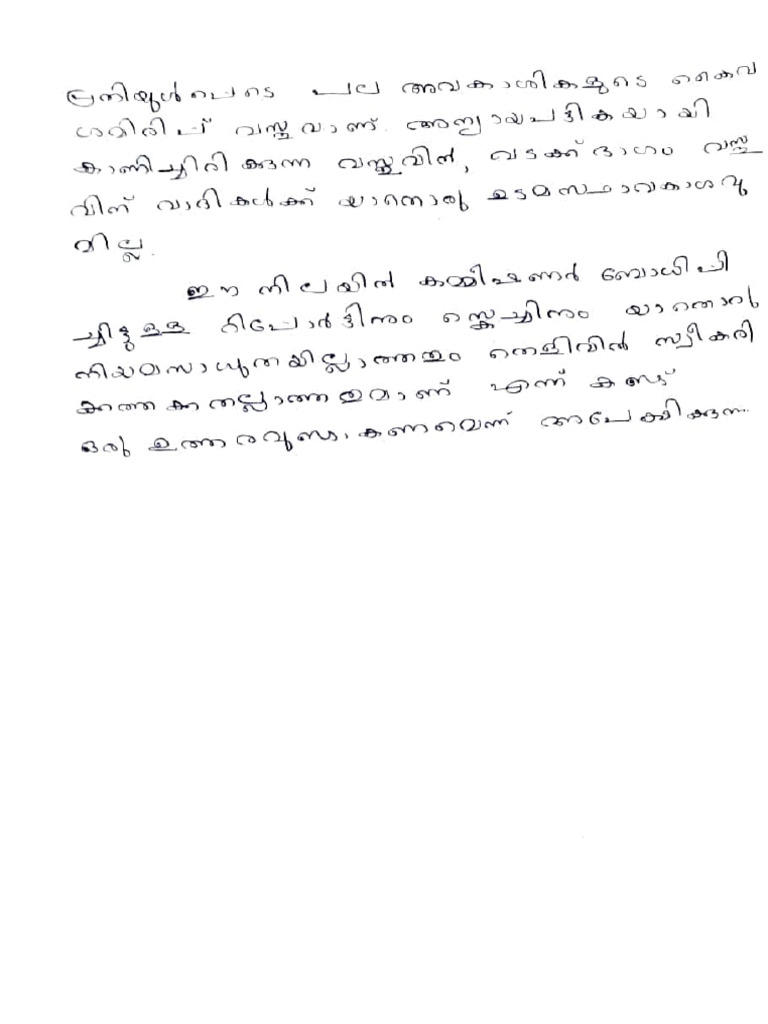 പ്രതിയുൾപെടെ പല അവകാശികളുടെ കൈവ
ശമിരിപ്പ് വസ്തുവാണ്. അന്യായപട്ടികയായി
കാണിച്ചിരിക്കുന്ന വസ്തുവിൽ, വടക്ക് ഭാഗം വസ്തു
വിന് വാദികൾക്ക് യാതൊരു ഉടമസ്ഥാവകാശവു
മില്ല.
ഈ നിലയിൽ കമ്മീഷണർ ബോധിപി
ച്ചിട്ടുള്ള റിപോർട്ടിനും സ്കെച്ചിനും യാതൊരു
നിയമസാധുതയില്ലാത്തതും തെളിവിൽ സ്വീകരി
ക്കത്തക്കതല്ലാത്തതുമാണ് എന്ന് കണ്ട്
ഒരു ഉത്തരവുണ്ടാകണമെന്ന് അപേക്ഷിക്കുന്നു.